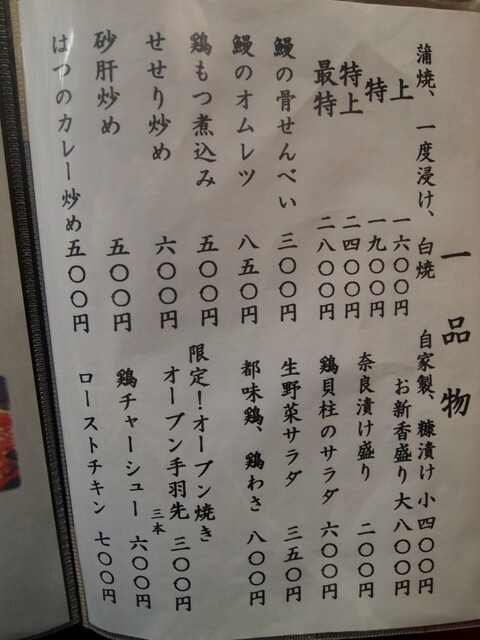 一品物
蒲焼、一度浸け、白焼
上 一六〇〇円
特 一九〇〇円
特上 二四〇〇円
最特 二八〇〇円
鰻の骨せんべい 三〇〇円
鰻のオムレツ 八五〇円
鶏もつ煮込み 五〇〇円
せせり炒め 六〇〇円
砂肝炒め 五〇〇円
はつのカレー炒め 五〇〇円
自家製、糠漬け 小四〇〇円
お新香盛り 大八〇〇円
奈良漬け盛り 二〇〇円
鶏貝柱のサラダ 六〇〇円
生野菜サラダ 三五〇円
都味鶏、鶏わさ 八〇〇円
限定！オーブン焼き
オーブン手羽先 三本 三〇〇円
鶏チャーシュー 六〇〇円
ローストチキン 七〇〇円